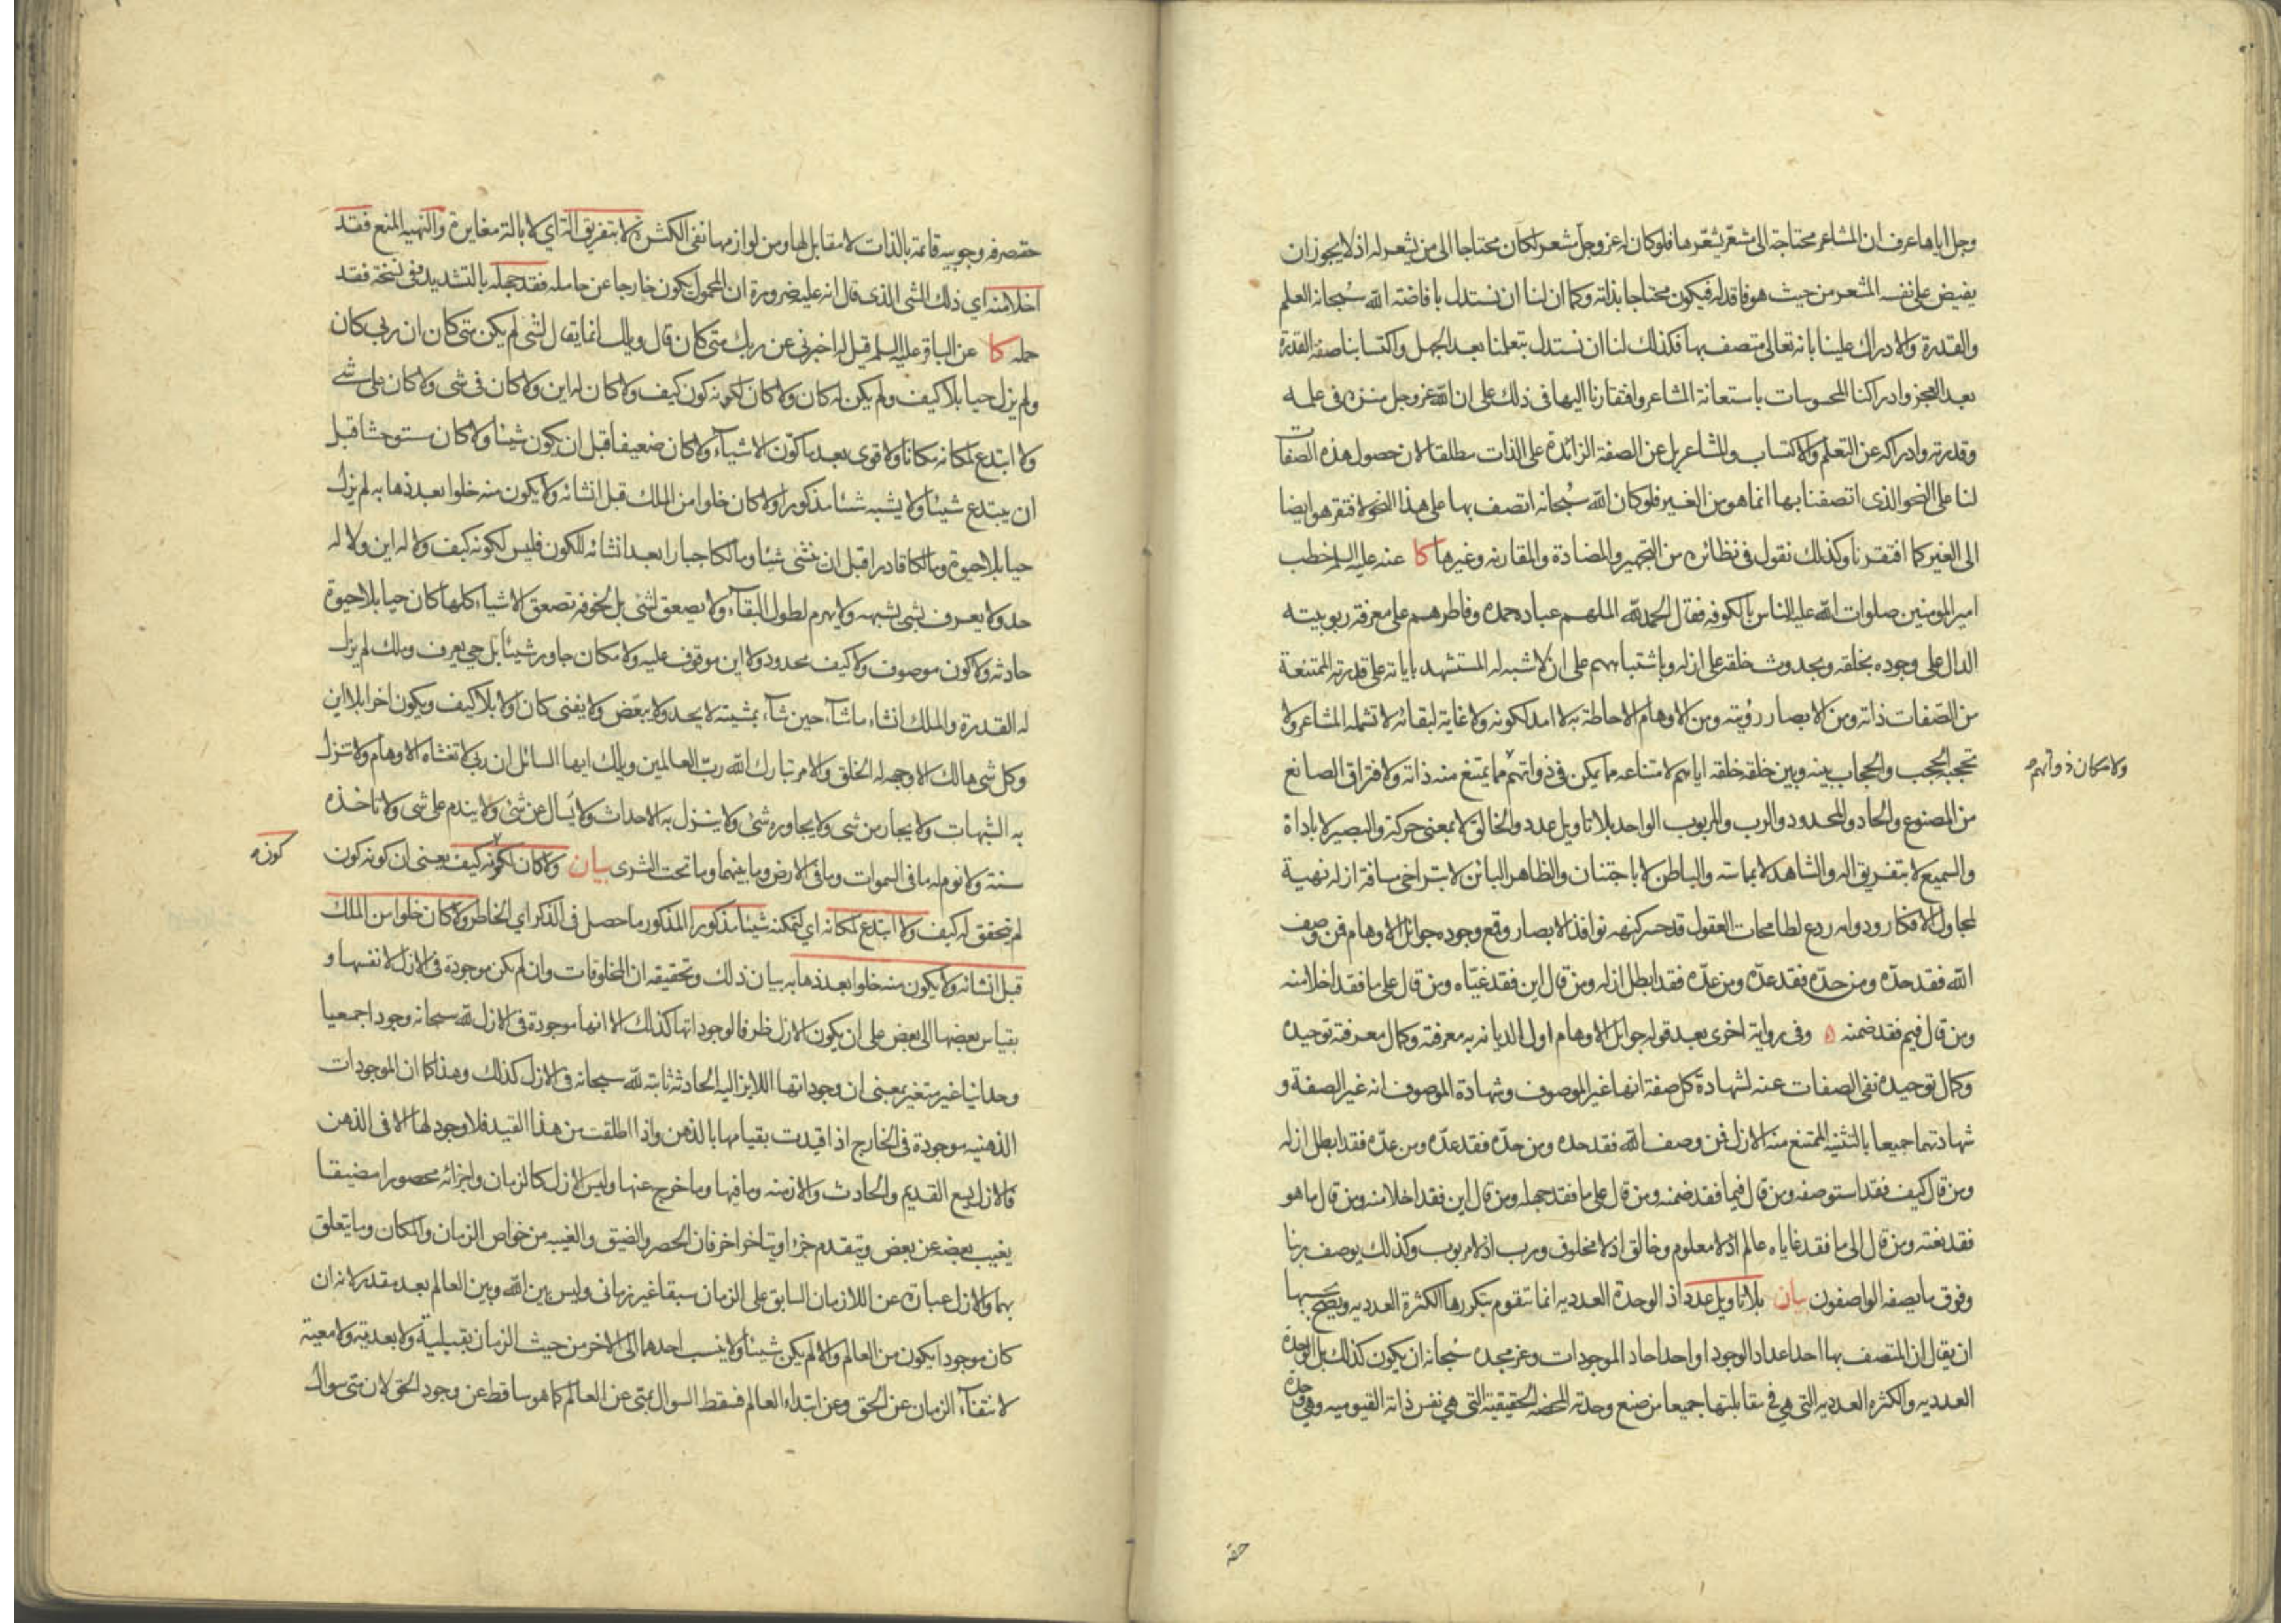 وجل اياها عرف ان المشاعر محتاجة الى مشعّر يشعّرها فلو كان له عز وجل مشعر لكان محتاجا الى من يشعر له اذ لا يجوز ان
يفيض على نفسه المشعر من حيث هو فاقد له فيكون محتاجا بذاته وكما ان لنا ان نستدل بافاضته الله سُبحانه العلم
والقدرة والادراك علينا بانه تعالى متصف بها فكذلك لنا ان نستدل بتعلمنا بعد الجهل واكتسابنا صفة القدرة
بعد العجز وادراكنا المحسوسات باستعانة المشاعر وافتقارنا اليها في ذلك على ان الله عز وجل منزه في علمه
وقدرته وادراكه عن التعلم والاكتساب والمشاعر بل عن الصفة الزائدة على الذات مطلقا لان حصول هذه الصفات
لنا على النحو الذى اتصفنا بها انما هو من الغير فلو كان الله سُبحانه اتصف بها على هذا النحو لافتقر هو ايضا
الى الغير كما افتقرنا وكذلك نقول فى نظائره من التجهير والمضادة والمقارنه وغيرها كا عنه عليه السلم خطب
امير المومنين صلوات الله عليه الناس بالكوفه فقال الحمد لله الملهم عباده حمده وفاطرهم على معرفة ربوبيته
الدال على وجوده بخلقه وبحدوث خلقه على ازله وباشتباههم على ان لا شبه له المستشهد باياته على قدرته الممتنعة
من الصّفات ذاته ومن الابصار رؤيته ومن الاوهام الاحاطة به لا امد لكونه ولا غاية لبقائه لا تشمله المشاعر ولا
تحجبه الحجب والحجاب بينه وبين خلقه خلقه اياهم لامتناعه مما يمكن فى ذواتهم مما يمتنع منه ذاته ولافتراق الصانع
ولامكان ذواتهم
من المصنوع والحاد والمحدود والرب والمربوب الواحد بلا تاويل عدد والخالق لا بمعنى حركة والبصير لا باداة
والسميع لا بتفريق اله والشاهد لا بمماسته والباطن لا باجتنان والظاهر البائن لا بتراخى مسافة ازله نهية
لمجاول الافكار ودوامه ردع لطامحات العقول قد حسر كنهه نوافذ الابصار وقمع وجوده جوائل الاوهام فمن وصف
الله فقد حدّه ومن حدّه فقد عدّه ومن عدّه فقد ابطل ازله ومن قال اين فقد غيّاه ومن قال على ما فقد اخلا منه
ومن قال فيم فقد ضمنه ه وفى رواية اخرى بعد قوله جوائل الاوهام اول الديانه به معرفته وكمال معرفته توحيده
وكمال توحيده نفى الصفات عنه لشهادة كل صفة انها غير الموصوف وشهادة الموصوف انه غير الصفة و
شهادتهما جميعا بالتثنيه الممتنع منه الازل فمن وصف الله فقد حده ومن حدّه فقد عدّه ومن عدّه فقد ابطل ازله
ومن قال كيف فقد استوصفه ومن قال فيما فقد ضمنه ومن قال على ما فقد جهله ومن قال اين فقد اخلا منه ومن قال ما هو
فقد نعته ومن قال الى ما فقد غاياه عالم اذ لا معلوم وخالق اذ لا مخلوق ورب اذ لا مربوب وكذلك يوصف ربنا
وفوق ما يصفه الواصفون بيان بلا تاويل عدد اذ الوحدة العدديه انما تتقوم بتكررها الكثرة العدديه ويصح بحسبها
ان يقال ان المتصف بها احد اعداد الوجود او احد احاد الموجودات وعز مجده سُبحانه ان يكون كذلك بل الوحدة
العدديه والكثره العدديه التى هى فى مقابلتها جميعا من صنع وحدته المحضه الحقيقية التى هى نفس ذاته القيوميه وهى وحدة
حقه
حقه صرفه وجوبيه قائمة بالذات لا مقابل لها ومن لوازمها نفى الكثره لا بتفريق الة اى لا بالة مغايرة والنهيه المنع فقد
اخلا منه اى ذلك الشى الذى قال انه عليه ضرورة ان المحمول يكون خارجا عن حامله فقد جهله بالتشديد وفى نسخة فقد
حمله كا عن الباقر عليه السلم قيل له اخبرنى عن ربك متى كان قال ويلك انما يقال لشى لم يكن متى كان ان ربى كان
ولم يزل حيا بلا كيف ولم يكن له كان ولا كان لكونه كون كيف ولا كان له اين ولا كان فى شى ولا كان على شى
ولا ابتدع لمكانه مكانا ولا قوى بعد ما كوّن الاشيآء ولا كان ضعيفا قبل ان يكون شيئا ولا كان مستوحشا قبل
ان يبتدع شيئا ولا يشبه شيئا مذكورا ولا كان خلوا من الملك قبل انشائه ولا يكون منه خلوا بعد ذهابه لم يزل
حيا بلا حيوة وملكا قادرا قبل ان ينشى شيئا وملكا جبارا بعد انشائه للكون فليس لكونه كيف ولا له اين ولا له
حد ولا يعرف بشى يشبهه ولا يهرم لطول البقآء ولا يصعق لشئ بل لخوفه تصعق الاشياء كلها كان حيا بلا حيوة
حادثه ولا كون موصوف ولا كيف محدود ولا اين موقوف عليه ولا مكان جاور شيئا بل حي يعرف وملك لم يزل
له القدرة والملك انشاء ما شآء حين شآء بمشيته لا يحد ولا يبعّض ولا يفنى كان اولا بلا كيف ويكون اخرا بلا اين
وكل شى هالك الا وجهه له الخلق والامر تبارك الله ربّ العالمين ويلك ايها السائل ان ربى لا تغشاه الاوهام ولا تنزل
به الشبهات ولا يجار من شى ولا يجاوره شئ ولا ينزل به الاحداث ولا يُسال عن شئ ولا يندم على شى ولا تاخذه
سنة ولا نوم له ما فى السموات وما فى الارض وما بينهما وما تحت الثرى بيان ولا كان لكونه كيف يعنى ان كونه كون
كون
لم يتحقق له كيف ولا ابتدع لمكانه اى لتمكنه شيئا مذكورا المذكور ما حصل فى الذكر اي الخاطر ولا كان خلوا من الملك
قبل انشائه ولا يكون منه خلوا بعد ذهابه بيان ذلك وتحقيقه ان المخلوقات وان لم يكن موجودة فى الازل لانفسها و
بقياس بعضها الى بعض على ان يكون الازل ظرفا لوجوداتها كذلك الا انها موجودة فى الازل لله سبحانه وجودا جمعيا
وحدانيا غير متغير بمعنى ان وجوداتها اللايزاليه الحادثه ثابته لله سبحانه فى الازل كذلك وهذا كما ان الموجودات
الذهنيه موجودة فى الخارج اذا قيدت بقيامها بالذهن واذا اطلقت من هذا القيد فلا وجود لها الا فى الذهن
فالازل يسع القديم والحادث والازمنه وما فيها وما خرج عنها وليس الازل كالزمان واجزائه محصورا مضيقا
يغيب بعضه عن بعض ويتقدم جزء ويتاخر اخر فان الحصر والضيق والغيبه من خواص الزمان والمكان وما يتعلق
بهما والازل عبارة عن اللازمان السابق على الزمان سبقا غير زمانى وليس بين الله وبين العالم بعد مقدر لانه ان
كان موجودا يكون من العالم والا لم يكن شيئا ولا ينسب احدهما الى الاخر من حيث الزمان بقبليّة ولا بعديّة ولا معيّة
لانتفآء الزمان عن الحق وعن ابتداء العالم فسقط السوال بمتى عن العالم كما هو ساقط عن وجود الحق لان متى سوال